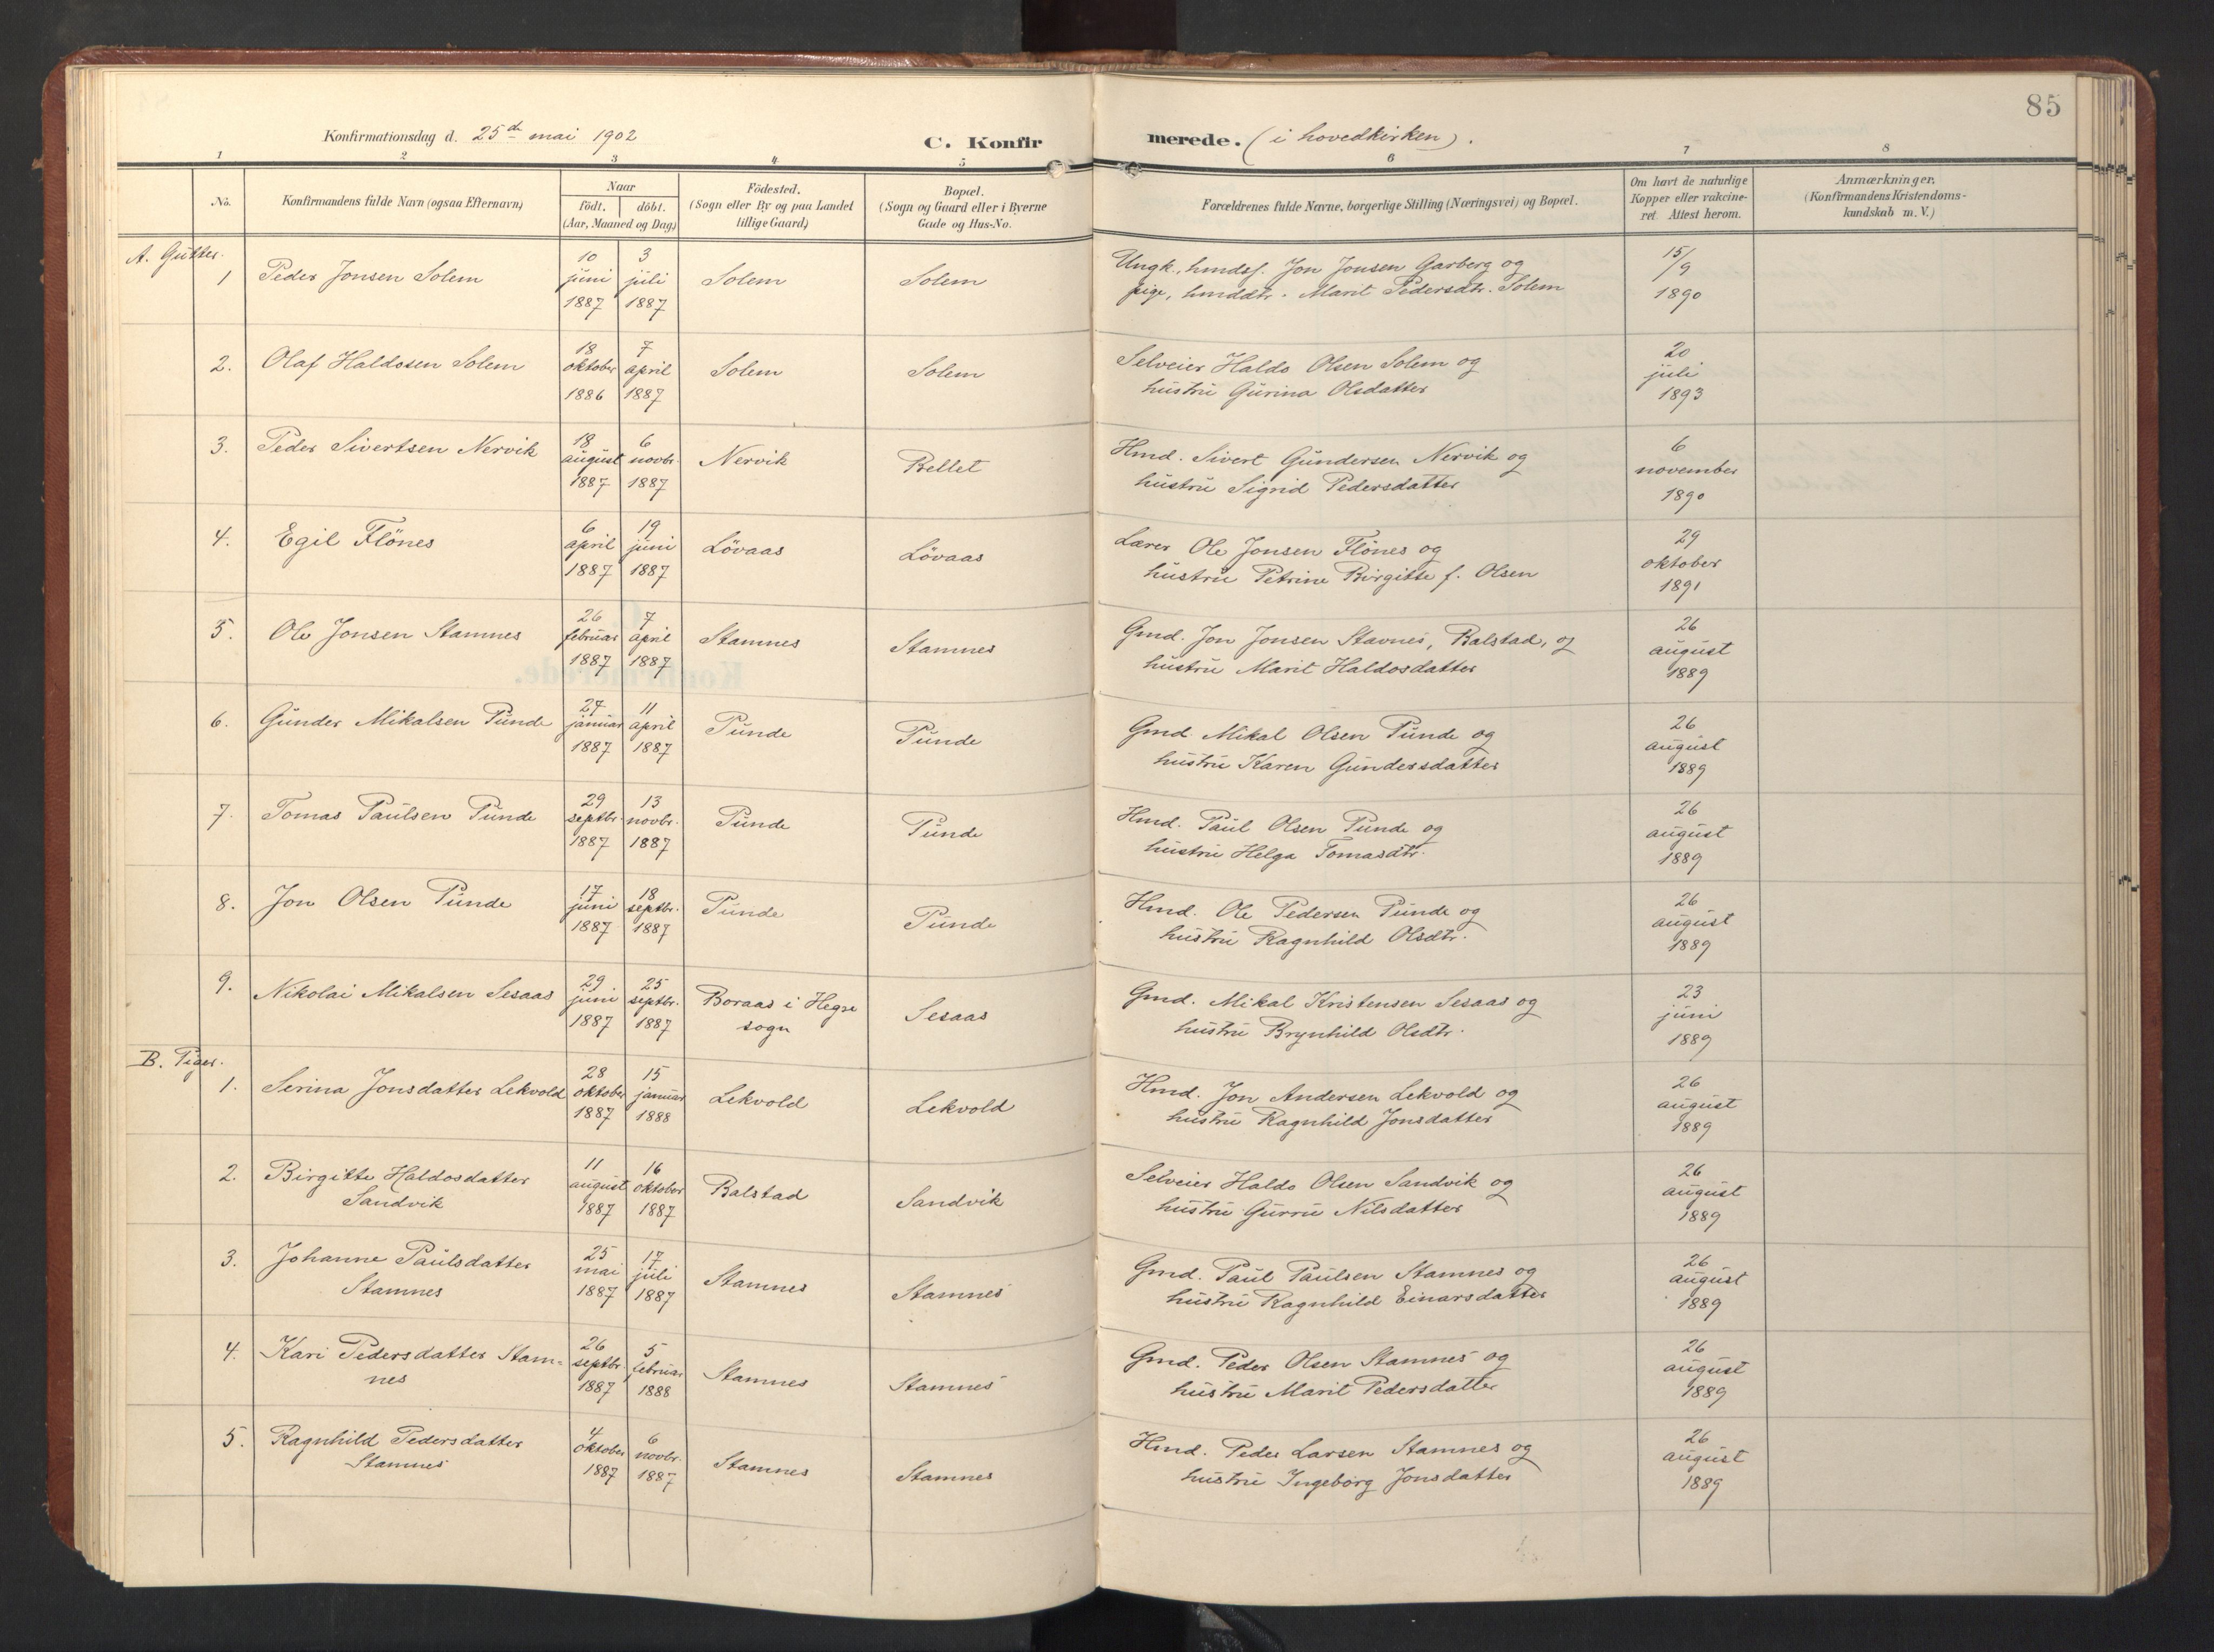 85
Konfirmationsdag d. 25de mai 1902
C. Konfir
merede. (i hovedkirken).
1 2 3 4 5 6 7 8
No.
Konfirmandens fulde Navn (ogsaa Efternavn)
Naar
födt. döbt.
(Aar, Maaned og Dag)
Födested.
(Sogn eller By og paa Landet
tillige Gaard)
Bopæl.
(Sogn og Gaard eller i Byerne
Gade og Hus-No.
Forældrenes fulde Navne, borgerlige Stilling (Næringsvei) og Bopæl.
Om havt de naturlige
Kopper eller vakcine-
ret Attest herom.
Anmærkninger.
(Konfirmandens Kristendoms-
kundskab m. V.)
A. Gutter.
1 Peder Jonsen Solem
10 juni 1887
3 juli 1887
Solem
Solem
Ungk., hmdsf. Jon Jonsen Garberg og
pige, hmddtr. Marit Pedersdtr. Solem
15/9 1890
2. Olaf Haldosen Solem
18 oktober 1886
7 april 1887
Solem
Solem
Selveier Haldo Olsen Solem og
hustru Gurina Olsdatter
20 juli 1893
3. Peder Sivertsen Nervik
18 august 1887
6 novbr. 1887
Nervik
Rellet
Hmd. Sivert Gundersen Nervik og
hustru Sigrid Pedersdatter
6 november 1890
4. Egil Flönes
6 april 1887
19 juni 1887
Lövaas
Lövaas
Lærer Ole Jonsen Flönes og
hustru Petrine Birgitte f. Olsen
29 oktober 1891
5. Ole Jonsen Stamnes
26 februar 1887
7 april 1887
Stamnes
Stamnes
Gmd. Jon Jonsen Stavnes, Balstad, og
hustru Marit Haldosdatter
26 august 1889
6. Gunder Mikalsen Punde
27 januar 1887
11 april 1887
Punde
Punde
Gmd. Mikal Olsen Punde og
hustru Karen Gundersdatter
26 august 1889
7. Tomas Paulsen Punde
29 septbr. 1887
13 novbr. 1887
Punde
Punde
Hmd. Paul Olsen Punde og
hustru Helga Tomasdtr.
26 august 1889
8. Jon Olsen Punde
17 juni 1887
18 septbr. 1887
Punde
Punde
Hmd. Ole Pedersen Punde og
hustru Ragnhild Olsdtr.
26 august 1889
9. Nikolai Mikalsen Sesaas
29 juni 1887
25 septbr. 1887
Boraas i Hegre
sogn
Sesaas
Gmd. Mikal Kristensen Sesaas og
hustru Brynhild Olsdtr.
23 juni 1889
B. Piger.
1. Serina Jonsdatter Lekvold
28 oktober 1887
15 januar 1888
Lekvold
Lekvold
Hmd. Jon Andersen Lekvold og
hustru Ragnhild Jonsdatter
26 august 1889
2. Birgitte Haldosdatter
Sandvik
11 august 1887
16 oktober 1887
Balstad
Sandvik
Selveier Haldo Olsen Sandvik og
hustru Gurru Nilsdatter
26 august 1889
3. Johanne Paulsdatter
Stamnes
25 mai 1887
17 juli 1887
Stamnes
Stamnes
Gmd. Paul Paulsen Stamnes og
hustru Ragnhild Einarsdatter
26 august 1889
4. Kari Pedersdatter Stam-
nes
26 septbr. 1887
5 februar 1888
Stamnes
Stamnes
Gmd. Peder Olsen Stamnes og
hustru Marit Pedersdatter
26 august 1889
5. Ragnhild Pedersdatter
Stamnes
4 oktober 1887
6 novbr. 1887
Stamnes
Stamnes
Hmd. Peder Larsen Stamnes og
hustru Ingeborg Jonsdatter
26 august 1889